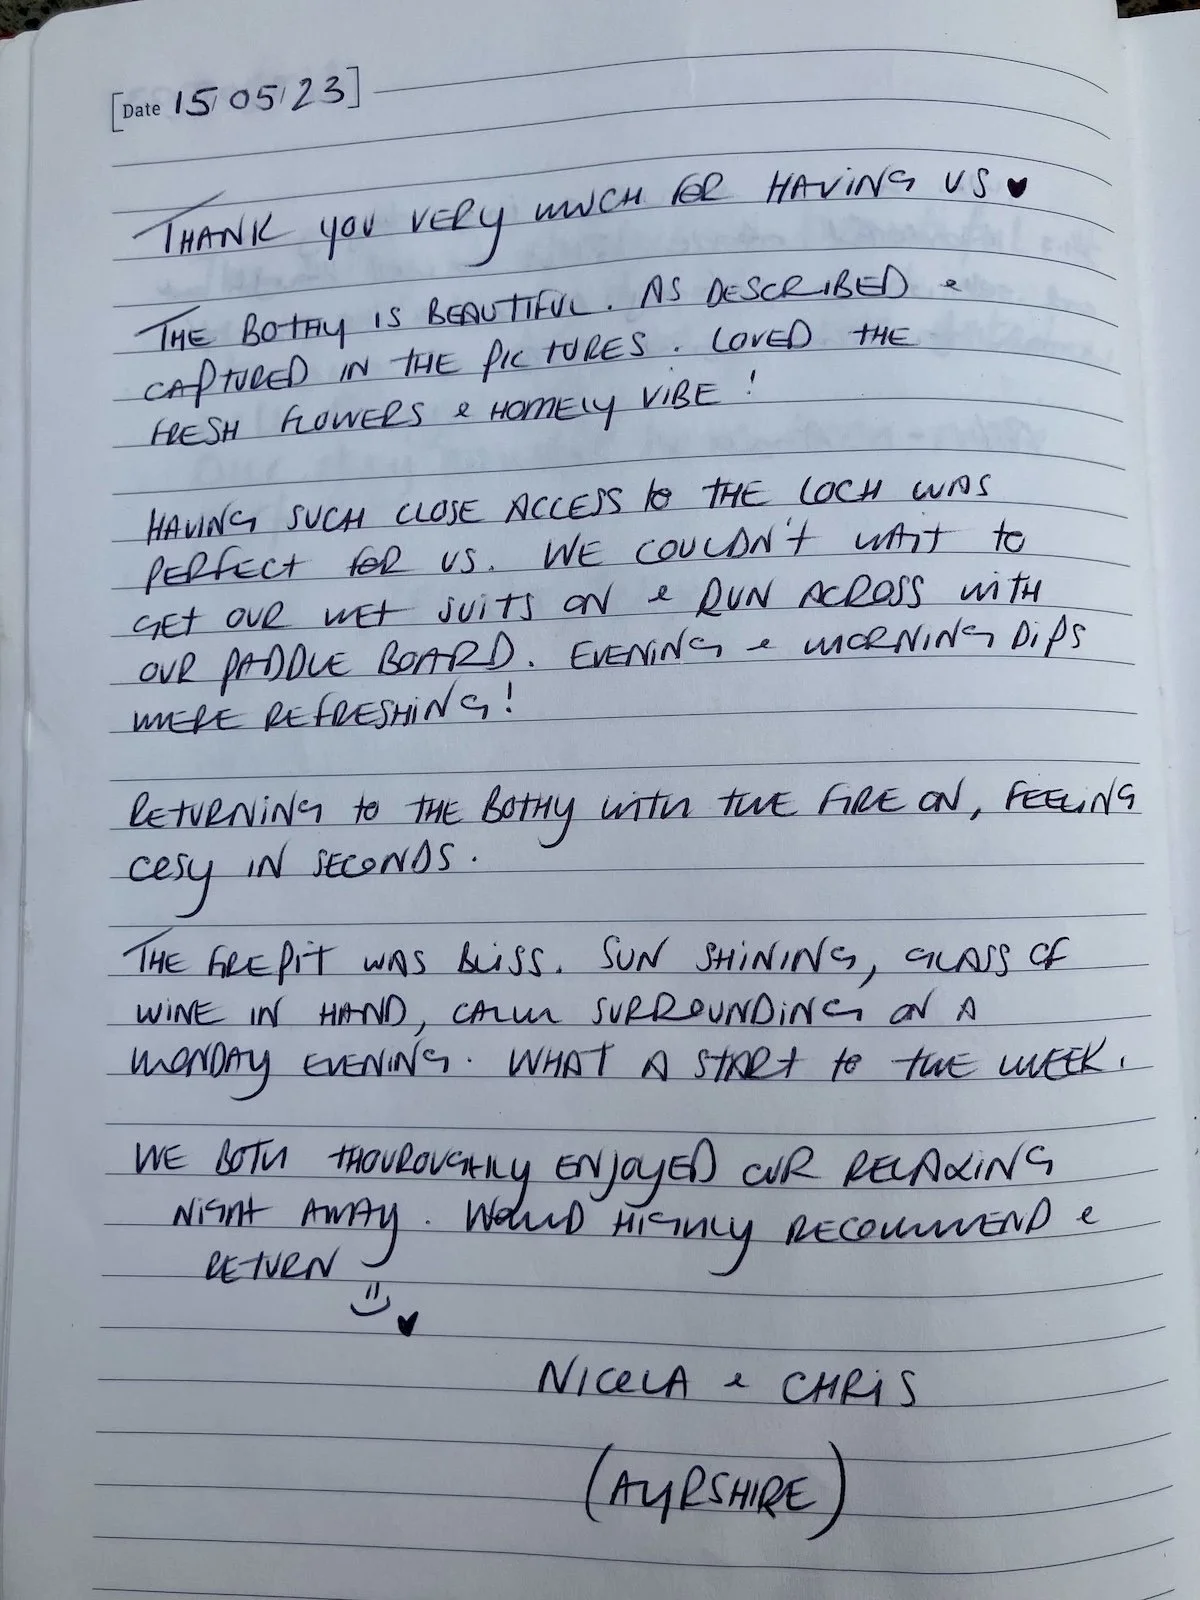 [Date 15/05/23]
THANK YOU VERY MUCH FOR HAVING US ♥
THE BOTHY IS BEAUTIFUL. AS DESCRIBED &
CAPTURED IN THE PICTURES. LOVED THE
FRESH FLOWERS & HOMELY VIBE!
HAVING SUCH CLOSE ACCESS to THE LOCH WAS
PERFECT FOR US. WE COULDN't WAIT to
GET OUR WET SUITS ON & RUN ACROSS WITH
OUR PADDLE BOARD. EVENING & MORNING DIPS
WERE REFRESHING!
RETURNING to THE BOTHY WITH THE FIRE ON, FEELING
COSY IN SECONDS.
THE FIREPIT WAS BLISS. SUN SHINING, GLASS OF
WINE IN HAND, CALM SURROUNDINGS ON A
MONDAY EVENING. WHAT A START to THE WEEK.
WE BOTH THOUROUGHLY ENJOYED OUR RELAXING
NIGHT AWAY. WOULD HIGHLY RECOMMEND &
RETURN
NICOLA & CHRIS
(AYRSHIRE)